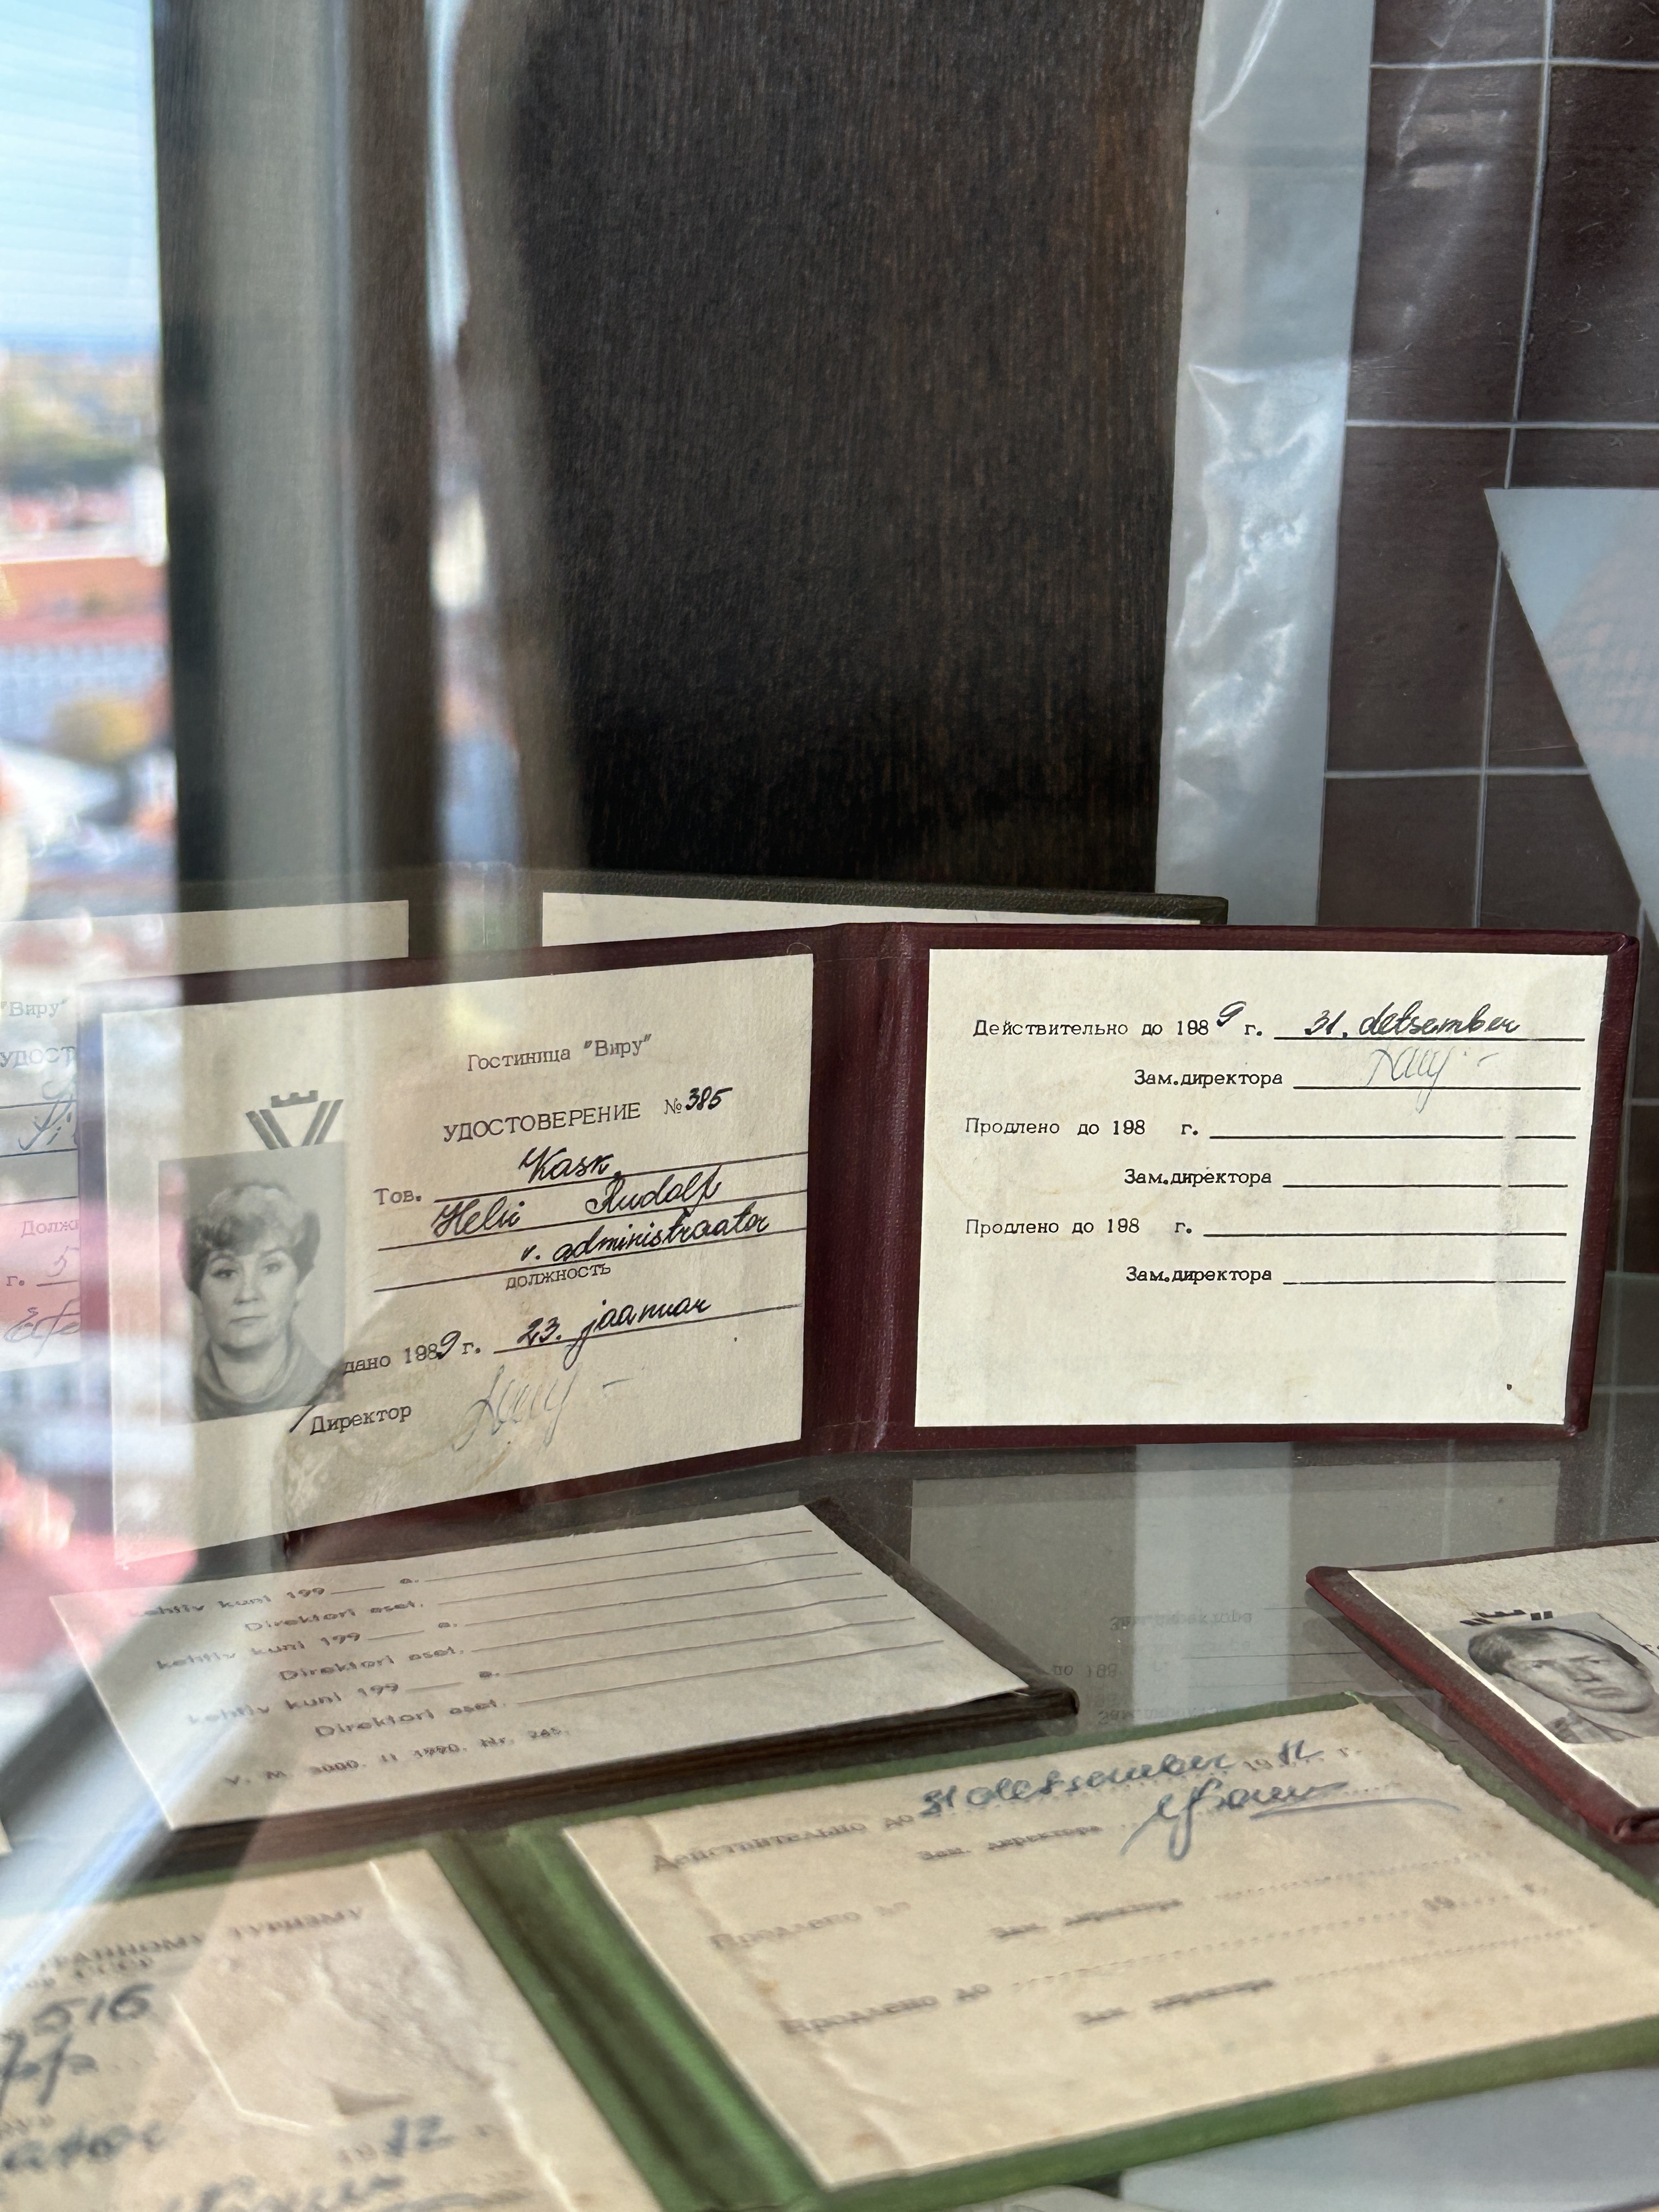 Гостиница "Виру"
УДОСТОВЕРЕНИЕ №385
Тов. Kask,
Helvi Rudolf
v. administraator
должность
дано 1989 г. 23. jaanuar
Директор
Действительно до 1989 г. 31. detsember
Зам.директора
Продлено до 198 г.
Зам.директора
Продлено до 198 г.
Зам.директора
"Виру"
УДОСТ
Должн
г. 5
kehtiv kuni 199 a.
Direktori aset.
kehtiv kuni 199 a.
Direktori aset.
kehtiv kuni 199 a.
Direktori aset.
V. M. 3000. II 1990. Nr. 265.
Действительно до 31 detsember 1982 г.
Зам. директора
Продлено до
Зам. директора 19 г.
Продлено до
Зам. директора
ТРАННОМУ ТУРИЗМУ
СССР
516
1982 г.
Зам.директора
до 198